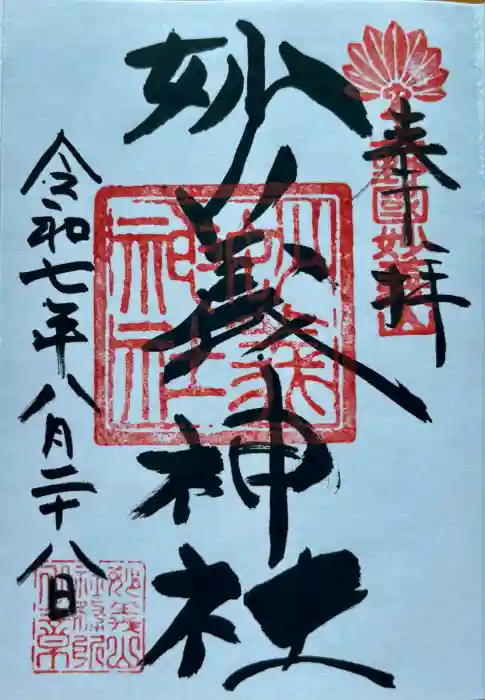 奉拝
妙義神社
令和七年八月二十八日